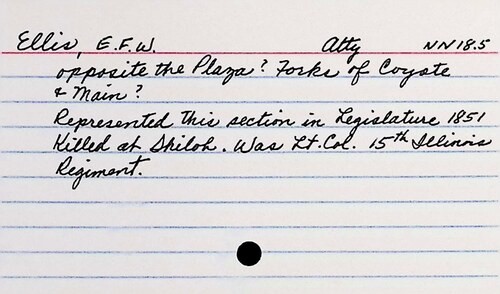 Ellis, E.F.W. Atty NN18.5
opposite the Plaza? Forks of Coyote
& Main?
Represented this section in Legislature 1851
Killed at Shiloh. Was Lt. Col. 15th Illinois
Regiment.